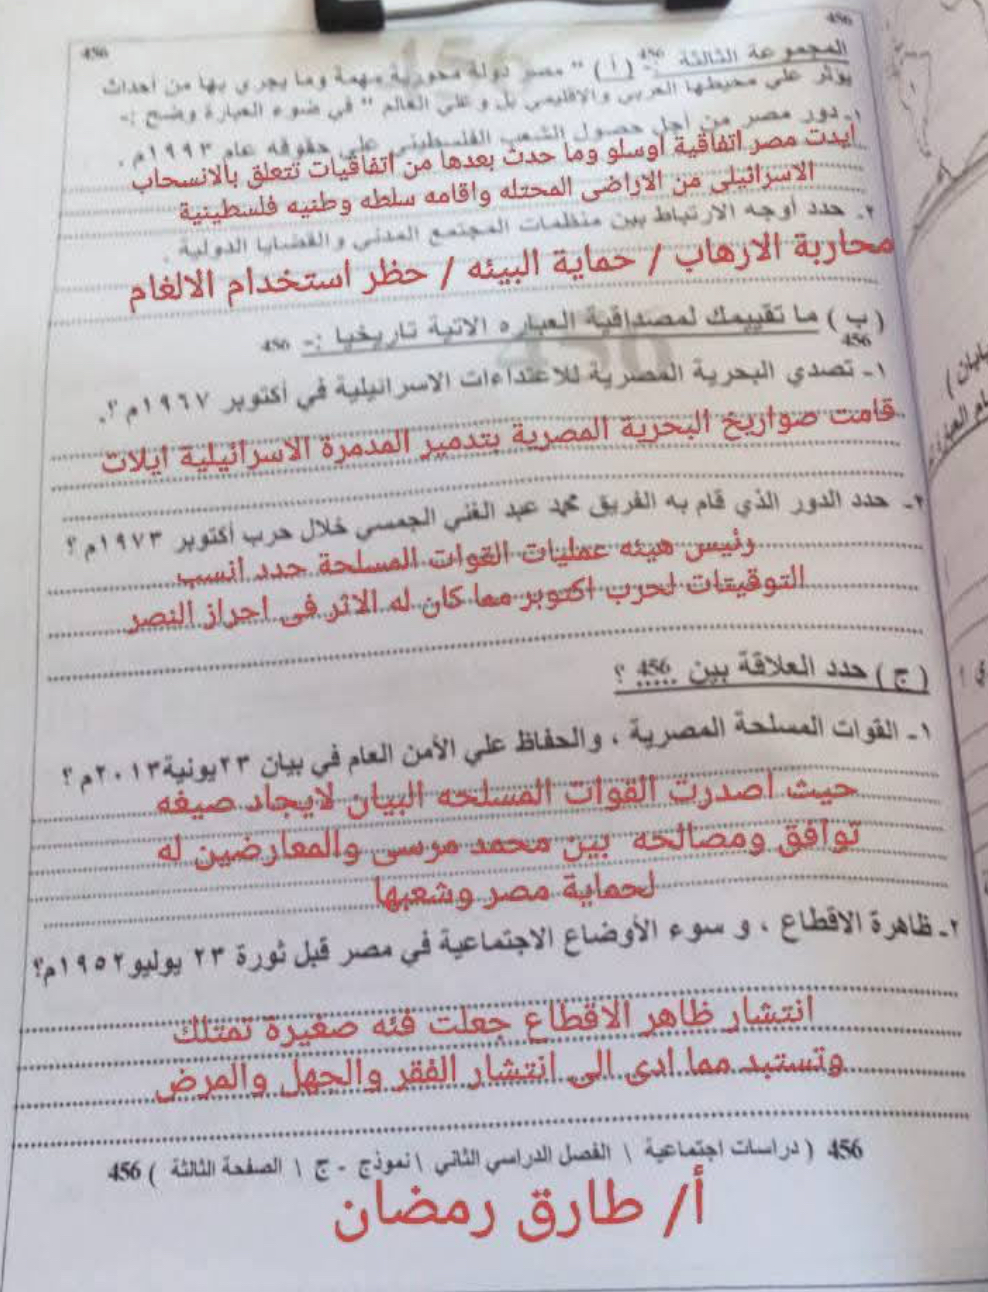 456
456
المجموعة الثالثة :- 456 (أ) " مصر دولة محورية مهمة وما يجرى بها من أحداث
يؤثر على محيطها العربي والاقليمي بل وعلى العالم " في ضوء العبارة وضح :-
١- دور مصر من أجل حصول الشعب الفلسطيني على حقوقه عام ١٩٩٣م .
ايدت مصر اتفاقية اوسلو وما حدث بعدها من اتفاقيات تتعلق بالانسحاب
الاسرائيلى من الاراضى المحتله واقامه سلطه وطنيه فلسطينية
٢- حدد أوجه الارتباط بين منظمات المجتمع المدني والقضايا الدولية .
محاربة الارهاب / حماية البيئه / حظر استخدام الالغام
(ب) ما تقييمك لمصداقية العباره الاتية تاريخيا :- 456
456
١- تصدي البحرية المصرية للاعتداءات الاسرائيلية في أكتوبر ١٩٦٧م ؟.
قامت صواريخ البحرية المصرية بتدمير المدمرة الاسرائيلية ايلات
٢- حدد الدور الذي قام به الفريق محمد عبد الغني الجمسي خلال حرب أكتوبر ١٩٧٣م ؟
رئيس هيئه عمليات القوات المسلحة حدد انسب
التوقيتات لحرب اكتوبر مما كان له الاثر فى احراز النصر
(ج) حدد العلاقة بين 456 ؟
١- القوات المسلحة المصرية ، والحفاظ علي الأمن العام في بيان ٢٣يونية٢٠١٣م ؟
حيث اصدرت القوات المسلحه البيان لايجاد صيغه
توافق ومصالحه بين محمد مرسى والمعارضين له
لحماية مصر وشعبها
٢- ظاهرة الاقطاع ، و سوء الأوضاع الاجتماعية في مصر قبل ثورة ٢٣ يوليو١٩٥٢م؟
انتشار ظاهر الاقطاع جعلت فئه صغيرة تمتلك
وتستبد مما ادى الى انتشار الفقر والجهل والمرض
456 ( دراسات اجتماعية \ الفصل الدراسي الثاني \ نموذج - ج \ الصفحة الثالثة ) 456
أ/ طارق رمضان